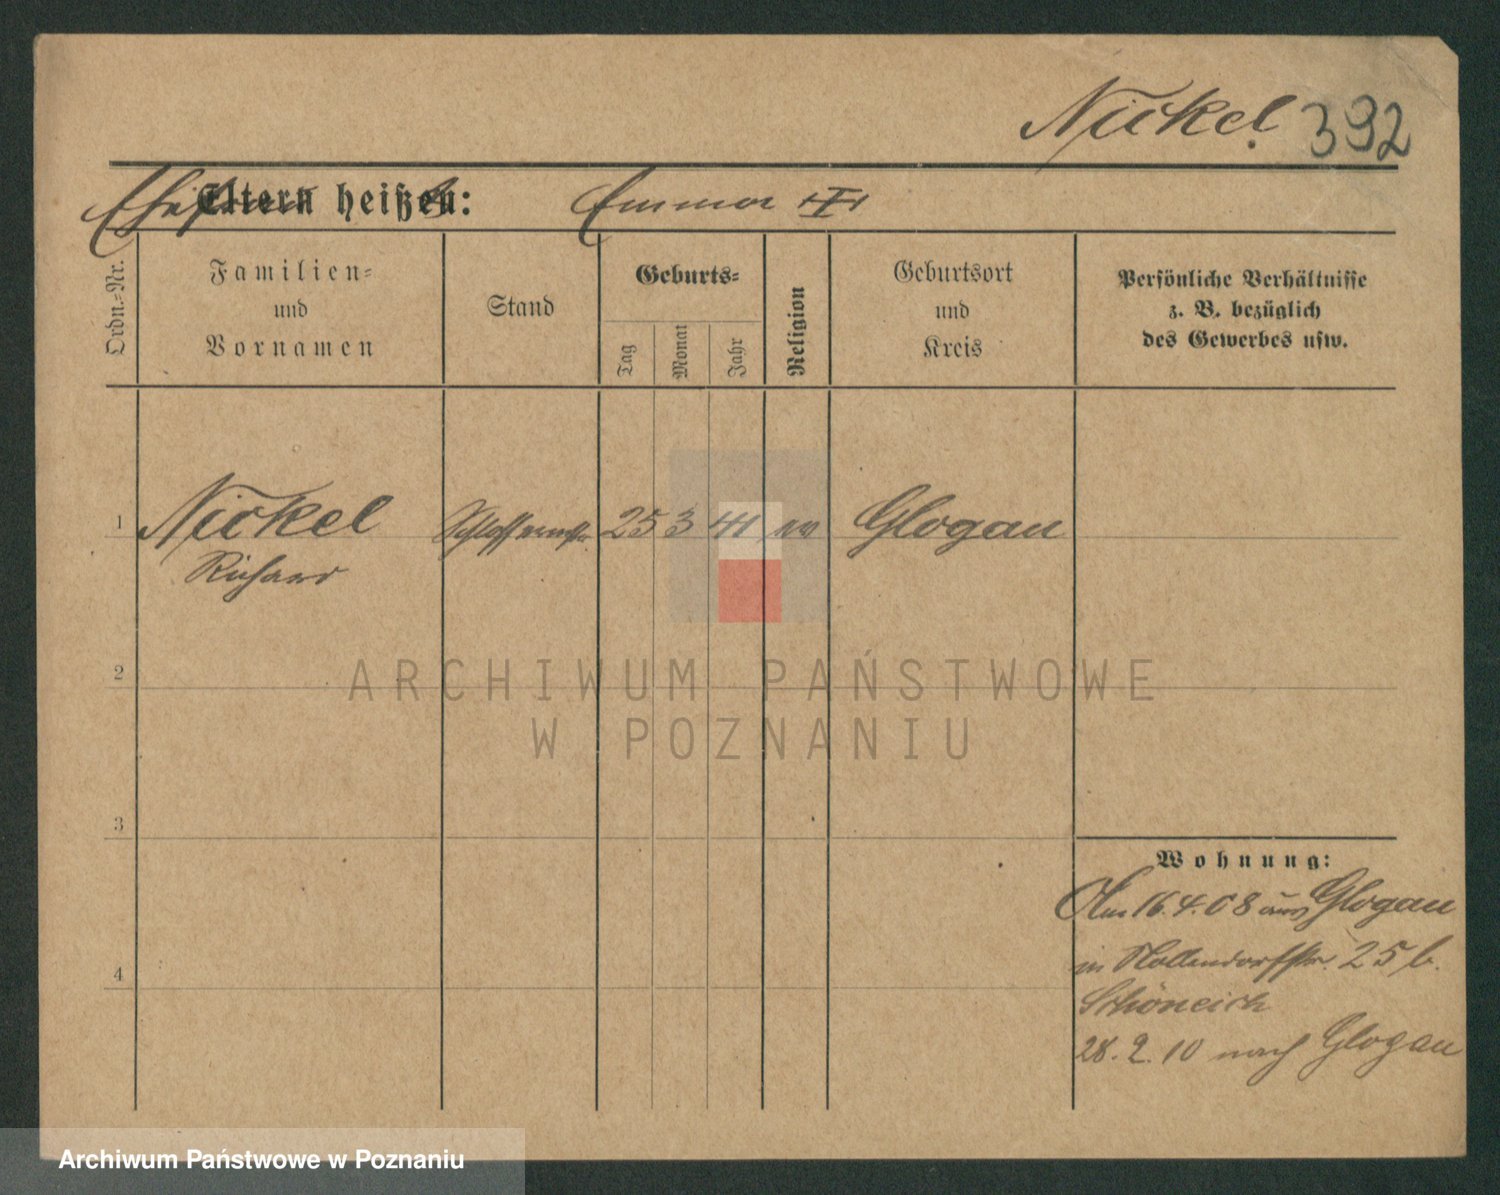 Nickel 392
Eltern heißen: Emma
Ordn.-Nr.
Familien-
und
Vornamen
Stand
Geburts-
Tag
Monat
Jahr
Religion
Geburtsort
und
Kreis
Persönliche Verhältnisse
z. B. bezüglich
des Gewerbes usw.
1 Nickel 25 3 41 Glogau
Richard
2
ARCHIWUM PAŃSTWOWE
W POZNANIU
3
Wohnung:
Am 16.4.08 aus Glogau
in Nollendorfstr. 25 b.
4
Schöneich
28.2.10 nach Glogau
Archiwum Państwowe w Poznaniu